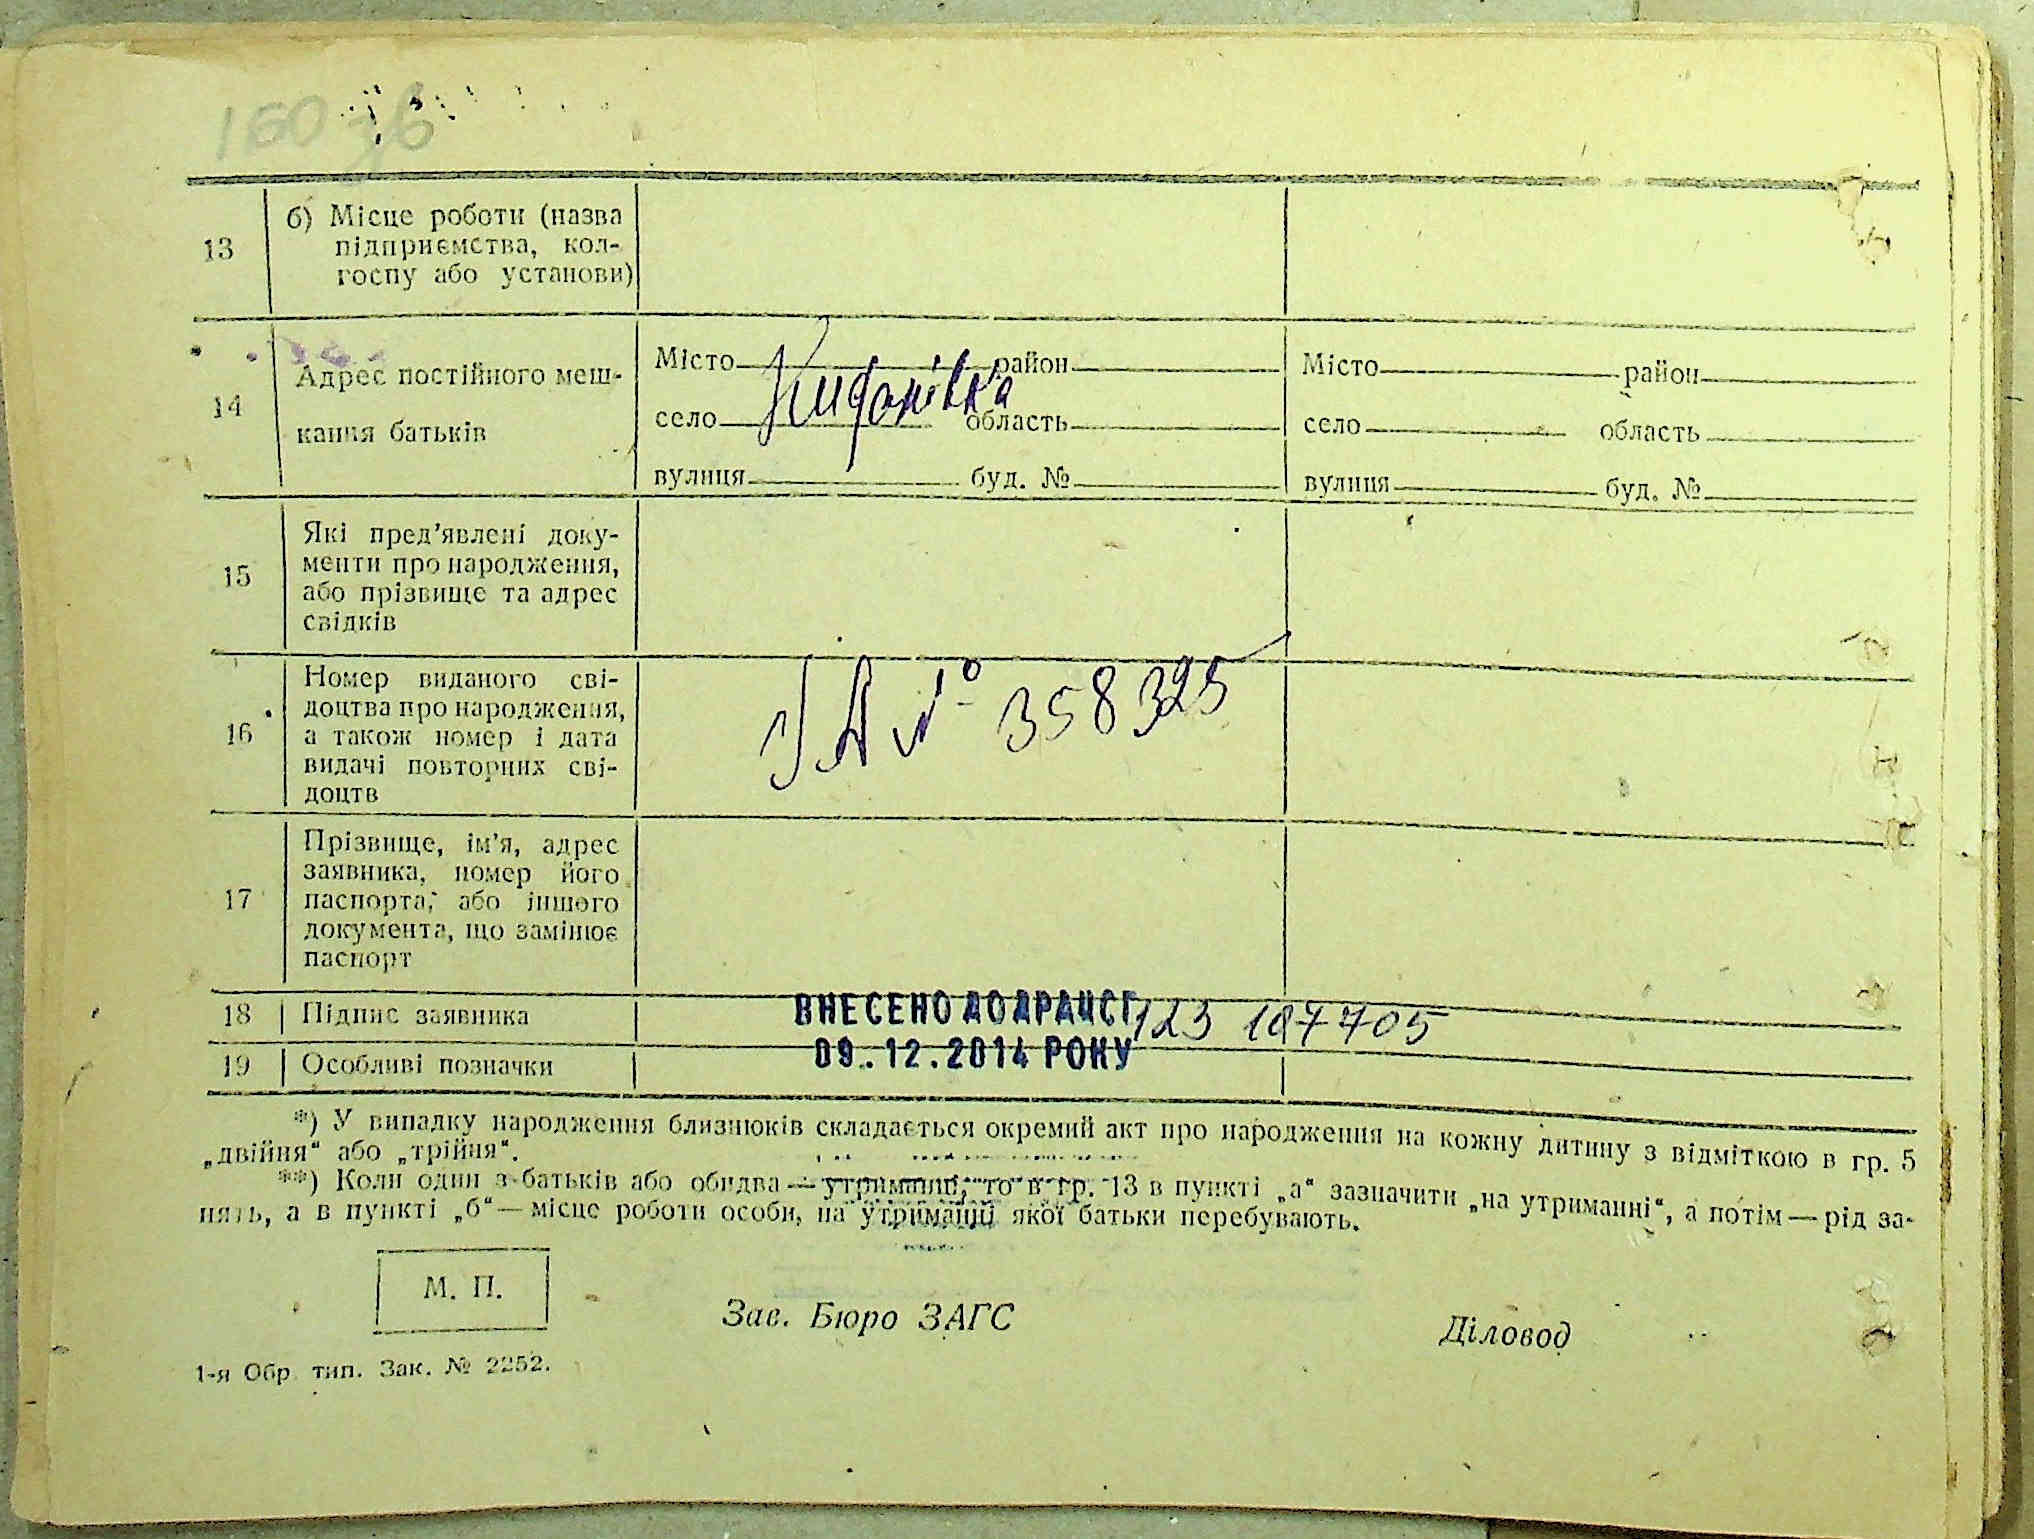 160 зв
13
б) Місце роботи (назва
підприємства, кол-
госпу або установи)
14
Адрес постійного меш-
кання батьків
Місто район
село Жидонівка область
вулиця буд. №
Місто район
село область
вулиця буд. №
15
Які пред’явлені доку-
менти про народження,
або прізвище та адрес
свідків
16
Номер виданого сві-
доцтва про народження,
а також номер і дата
видачі повторних сві-
доцтв
УА № 358325
17
Прізвище, ім’я, адрес
заявника, номер його
паспорта, або іншого
документа, що замінює
паспорт
18 Підпис заявника
ВНЕСЕНО ДО ДРАЦСГ 123 107705
09.12.2014 РОКУ
19 Особливі позначки
*) У випадку народження близнюків складається окремий акт про народження на кожну дитину з відміткою в гр. 5
„двійня“ або „трійня“.
**) Коли один з батьків або обидва — утриманці, то в гр. 13 в пункті „а“ зазначити „на утриманні“, а потім — рід за-
нять, а в пункті „б“ — місце роботи особи, на утриманні якої батьки перебувають.
М. П.
Зав. Бюро ЗАГС
Діловод
1-я Обр. тип. Зак. № 2252.